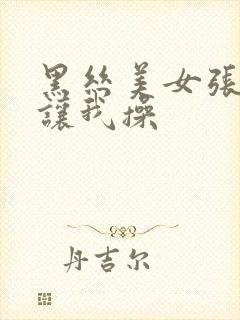 黑丝美女張
讓我操
丹吉尔